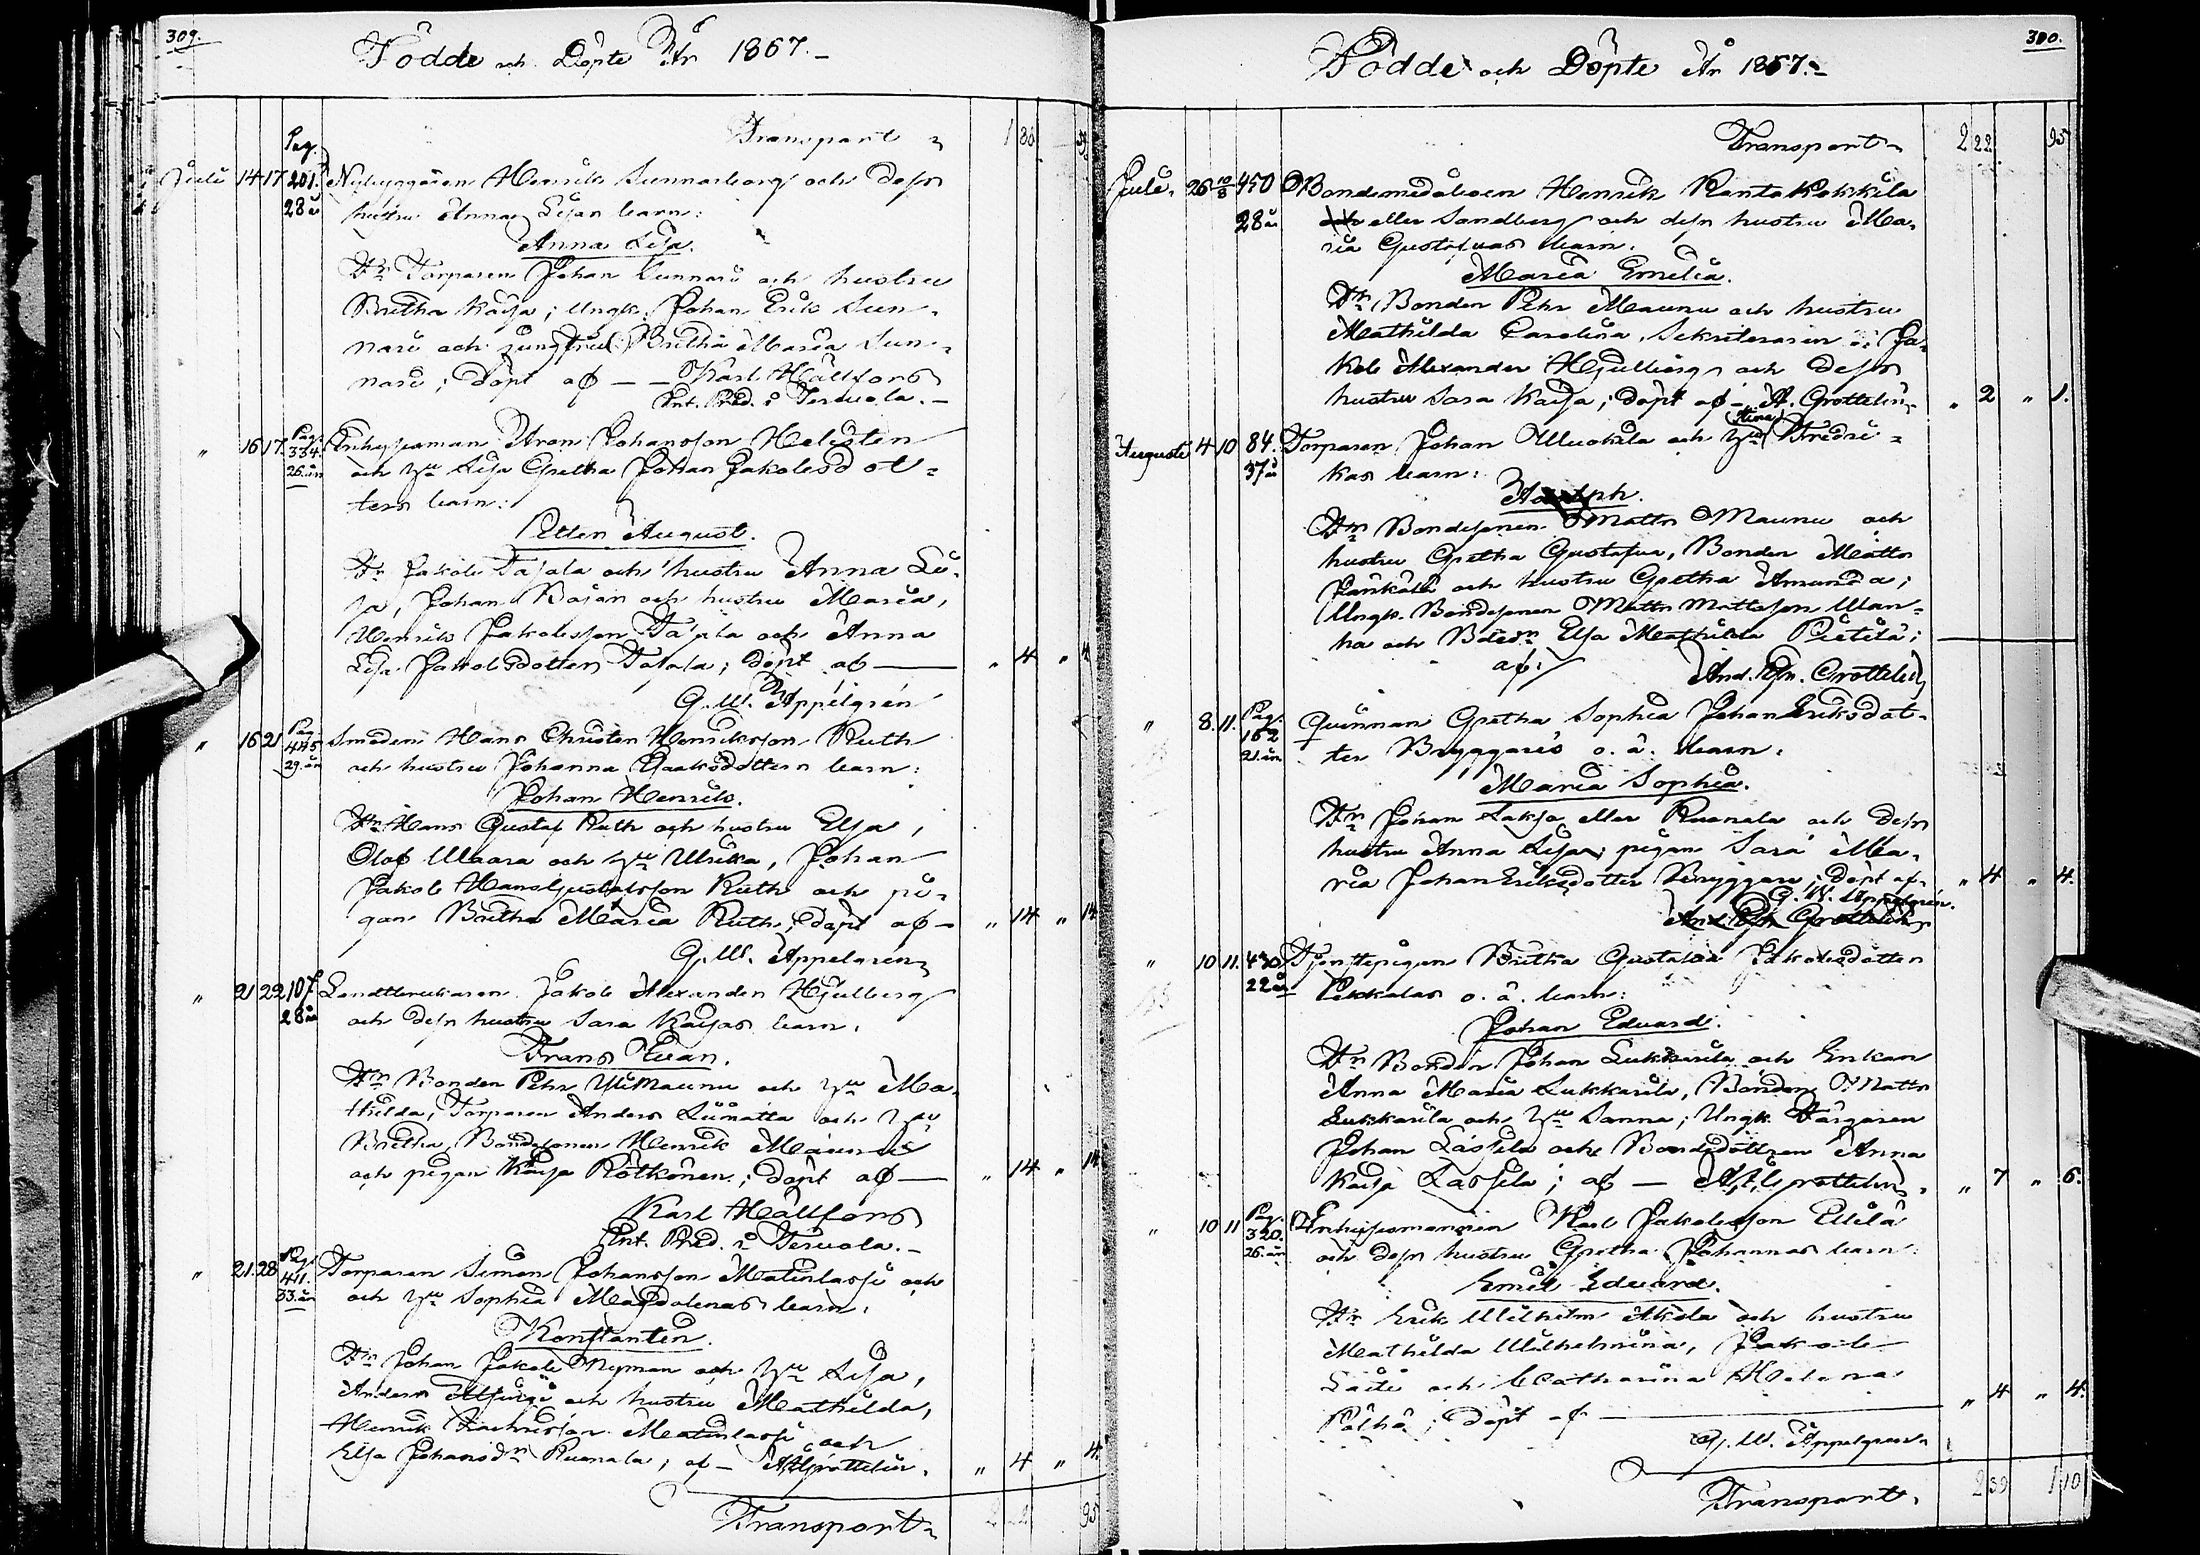 309.
Födde och Döpte År 1867.
Transport
Pag.
Juli 14 17 201. Nybyggaren Henrik Sunnarborg och dess
28 år hustru Annas Lisas barn:
Anna Lisa.
Fr Torparen Johan Sunnari och hustru
Britha Kaisa; Ungk. Johan Erik Sun-
nari och jungfrun Britha Maria Sun-
nari; döpt af — Karl Hällfors
Ext. Pred. i Tervola.
" 16 17 Pag. 334. Enhyseman Aron Johansson Helisten
26. år och hu Lisa Gretha Johan Jakobsdot-
ters barn:
Petter August.
Fr Jakob Tapala och hustru Anna Li-
sa, Johan Bajar och hustru Maria,
Henrik Jakobsson Tapala och Anna
Lisa Jakobsdotter Tapala; döpt af — " 4 " 4
G. W. Appelgren
" 16 21 Pag. 445 Smeden Hans Christer Henriksson Ruth
29. år och hustru Johanna Isaksdotters barn:
Johan Henrik.
Fr Hans Gustaf Ruth och hustru Elsa,
Olof Waara och hu Ulrika, Johan
Jakob Hans Gustafsson Ruth och pi-
gan Britha Maria Ruth; döpt af — " 14 " 14
G. W. Appelgren
" 21 22 107 Landtbrukaren Jakob Alexander Hjulberg
28 år och dess hustru Sara Kaisas barn.
Frans Evan.
Fr Bonden Pehr Ylimaunu och hu Ma-
thilda, Torparen Anders Liimatta och hu
Britha, Bondesonen Henrik Maunu
och pigan Kaisa Rötkönen; döpt af — " 14 " 14
Karl Hällfors
Ext. Pred. i Tervola.
" 21. 28 Pag. 411. Torparen Simon Johansson Matinlassi och
33. år och hu Sophia Magdalenas barn.
Konstantin.
Fr Johan Jakob Nyman och hu Lisa,
Anders och hustru Mathilda,
Henrik Matinlassi och
Elsa Johansdr Ruonala, af — A. E. Grottelin. " 4 " 4.
Transport 95
300.
Födde och Döpte År 1867.
Transport 2 22 95
Juli. 26 10/8 450 Bondemågen Henrik Rantakokkila
28 år eller Sandberg och dess hustru Ma-
ria Gustafvas barn.
Maria Emilia.
Fr Bonden Pehr Maunu och hustru
Mathilda Carolina, Sekreteraren Ja-
kob Alexander Hjulberg och dess
hustru Sara Kaisa; döpt af — A. Grottelin " 2 " 1.
Augusti 4 10 84. Torparen Johan Uuokila och hu Stina Fredri-
37 år kas barn:
Adolph.
Fr Bondesonen Matts Maunu och
hustru Gretha Gustafva, Bonden Matts
Pankala och hustru Gretha Amanda;
Ungk. Bondesonen Matts Mattsson Wan-
ha och Bdedr Elsa Mathilda Pietilä;
af: And. Efr. Grottelin
" 8. 11. Pag. 162 Qvinnan Gretha Sophia Johan Eriksdot-
21. år ter Bryggaris o. ä. barn.
Maria Sophia.
Fr Johan Laksa eller Ruonala och dess
hustru Anna Lisa; pigan Sara Ma-
ria Johan Eriksdotter Bryggare; döpt af " 4 " 4.
G. W. Appelgren.
And. Efr. Grottelin
" 10 11. 430 Tjenstepigan Britha Gustafva Jakobsdotter
22 år Pekkalas o. ä. barn:
Johan Edvard.
Fr Bonden Johan Lukkarila och Enkan
Anna Maria Lukkarila, Bonden Matts
Lukkarila och hu Sanna; Ungk. Färgaren
Johan Lassila och Bondedottren Anna
Kaisa Lassila; af — A. E. Grottelin. " 7 " 6.
" 10 11 Pag. 320. Enhysesmannen Karl Jakobsson Ellilä
26. år och dess hustru Gretha Johannas barn.
Emil Edvard.
Fr Erik Wilhelm Akola och hustru
Mathilda Wilhelmina, Jakob
Laiti och Catharina Helena
Pälhö; döpt af — " 4 " 4.
G. W. Appelgren
Transport. 2 39 1 10